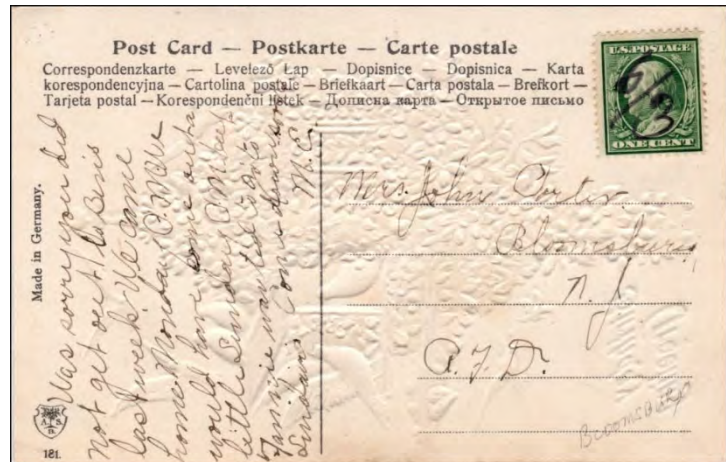 Post Card — Postkarte — Carte postale
Correspondenzkarte — Levelező Lap — Dopisnice — Dopisnica — Karta
korespondencyjna — Cartolina postale — Briefkaart — Carta postala — Brefkort —
Tarjeta postal — Korespondenční lístek — Дописна карта — Открытое письмо
U.S. POSTAGE
ONE CENT
Made in Germany.
Was sorry you did
not get out
last week We come
home Monday P.M. We
would have come
little Sunday P.M. but
wanted to
Sunday M.C.
Mrs. John
Bloomsbury
N. J.
R. F. D.
Bloomsbury
181.